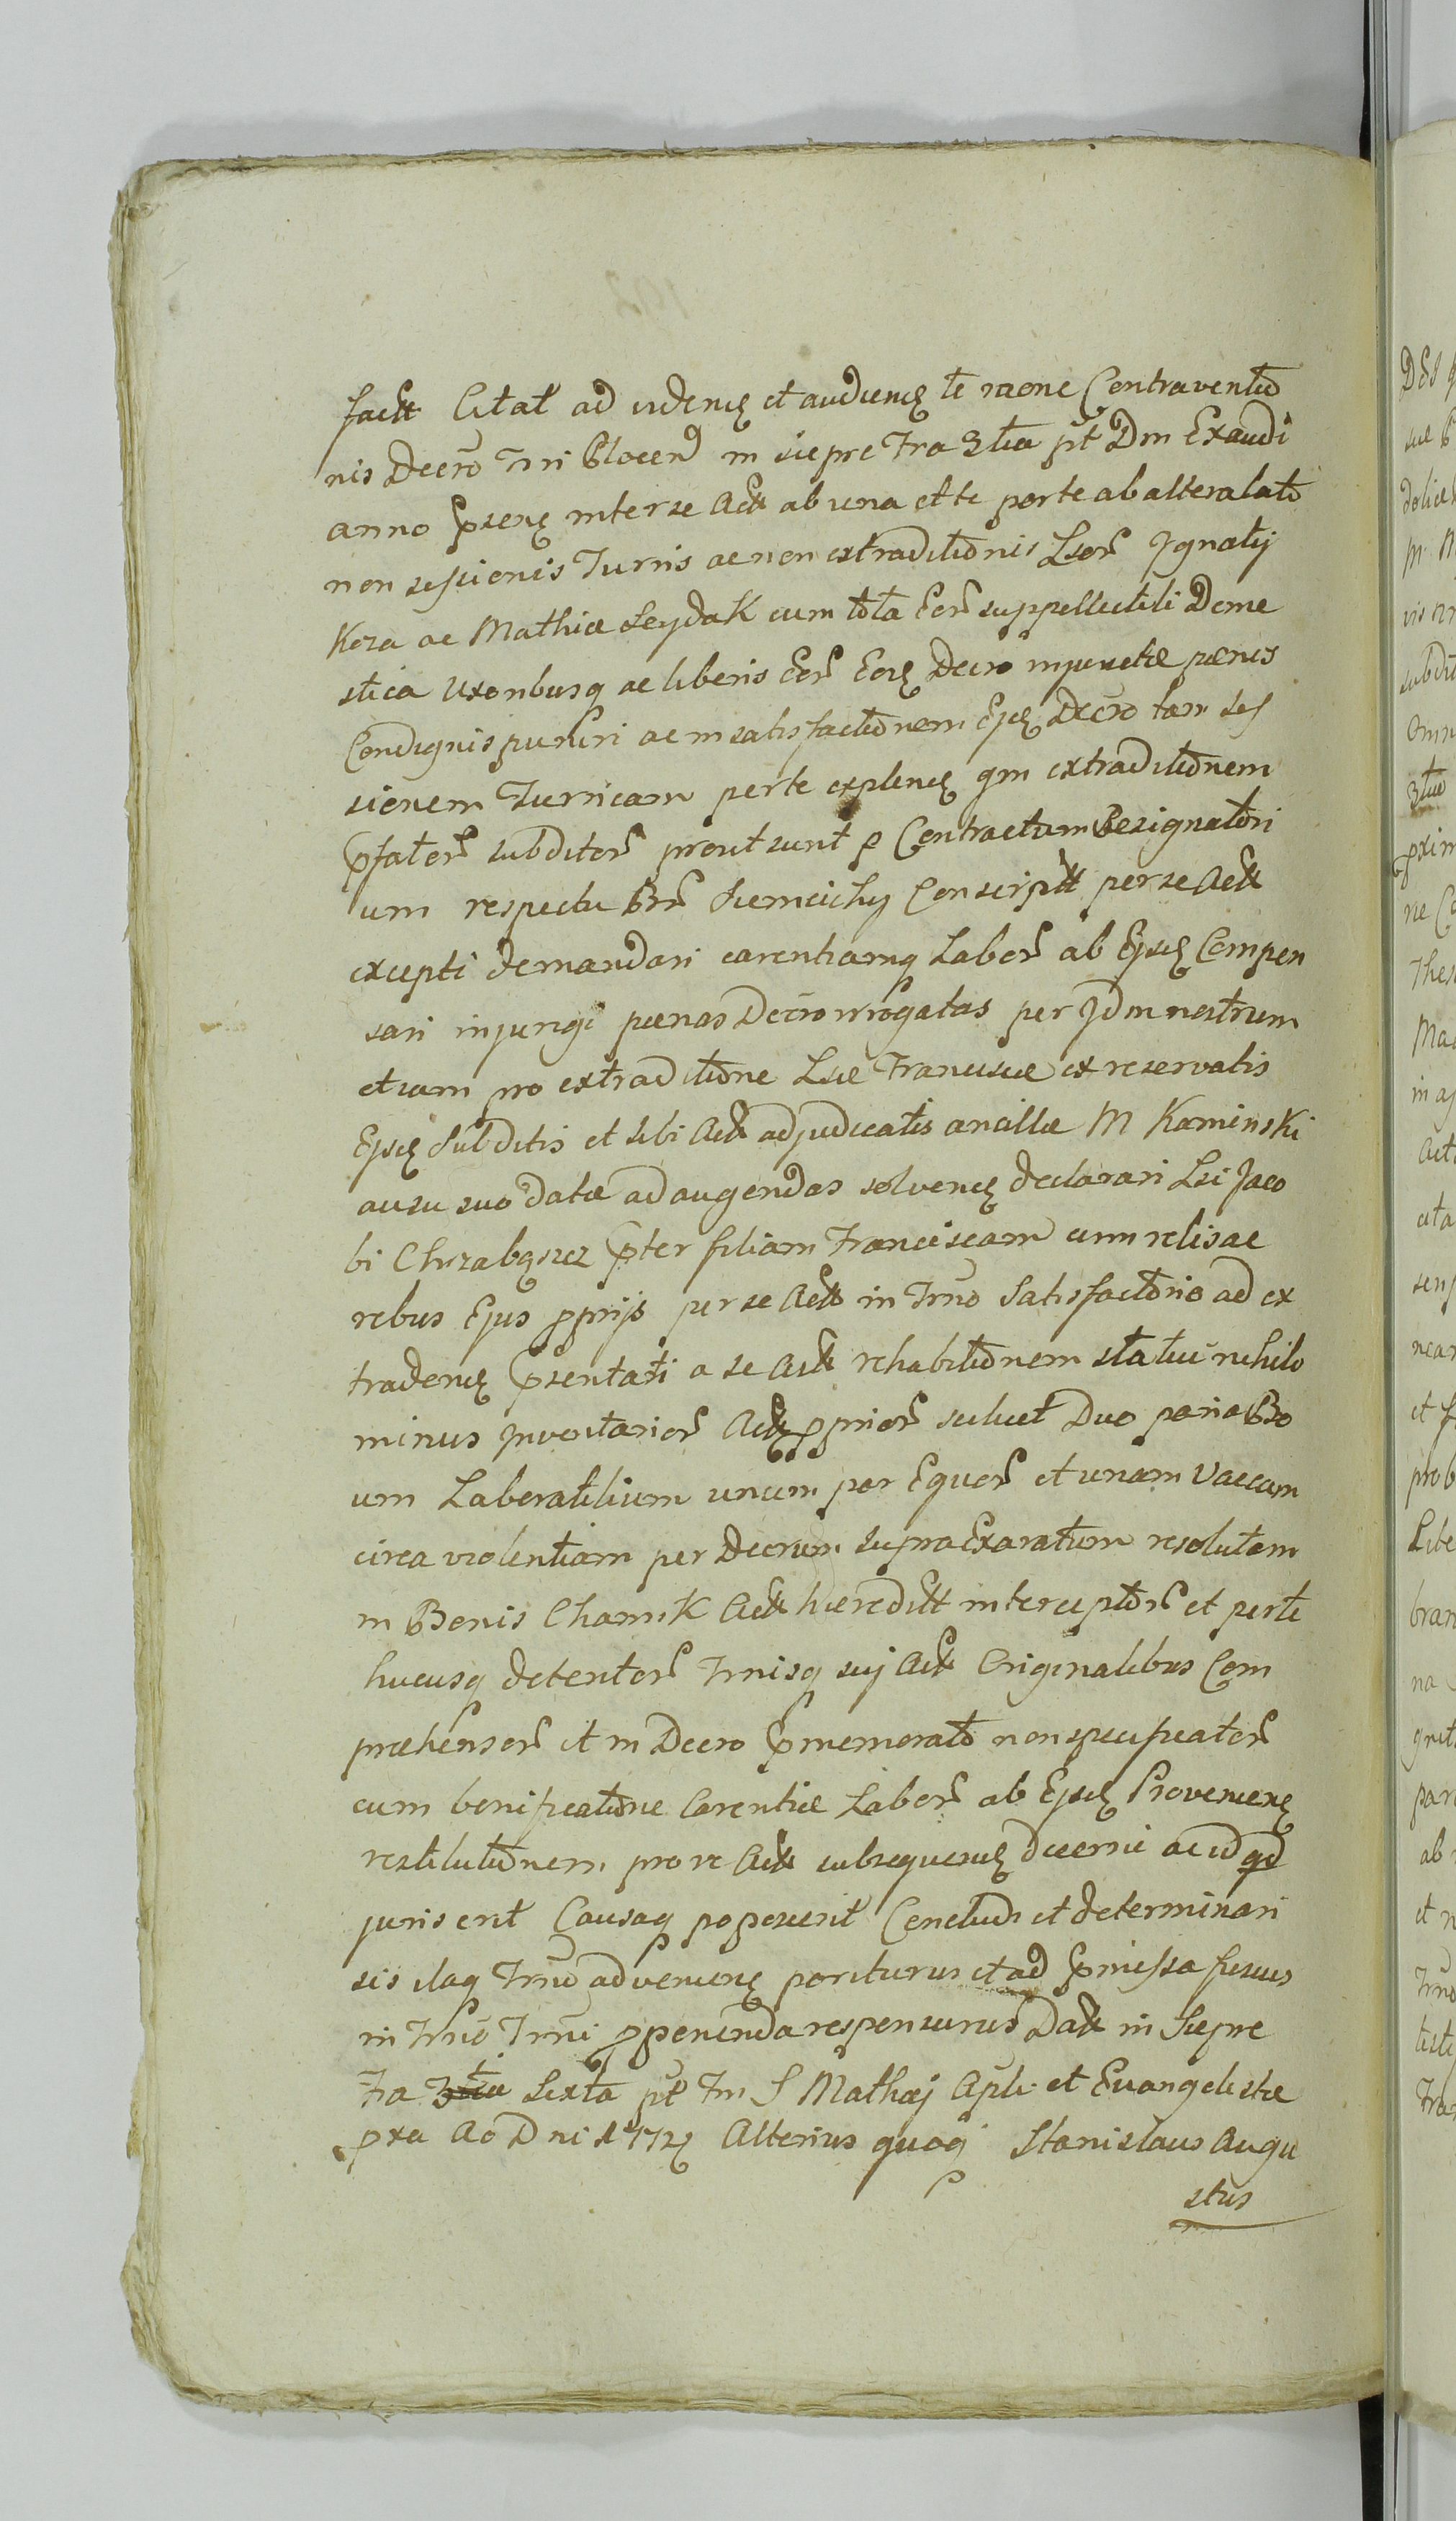 fact Citat ad videnɋ et audienɋ te raone Contraventio
nis Decro Trri Plocen in siepre Fra 3tia pt Dm Exaudi
anno Psenɋ inter se Act ab una et te parte ab altera lato
non sessionis Turris ac non extraditionis Lsor Ignatij
Koza ac Mathiæ Leydak cum tota Eor suppellectili Dome
stica Uxoribusq ac liberis Eor Eodɋ Decro injunctæ pænis
Condignis puniri ac in satisfactionem Ejɋ Decro tam ses
sionem Turricam per te explenɋ qm extraditionem
Pfator subditor prout sunt p Contractum Resignatori
um respectu Bor Siemcichy Conscriptt per se Act
excepti demandari carentiamq Labor ab Ejsɋ Compen
sari injungi pænas Decro irrogatas per Jdm nostrum
etiam pro extraditione Lsæ Franciscæ ex reservatis
Ejsɋ Subditis et sibi Act adjudicatis ancillæ M Kaminski
ausu suo datæ ad augendas solvenɋ declarari Lsi Jaco
bi Chrzabąszcz Pter filiam Franciscam cum relis ac
rebus Ejus pprijs per se Act in Trno Satisfactorio ad ex
tradenɋ Psentati a se Act rehabitionem statui nihilo
minus Inventarior Act pprior scilicet Duo paria Bo
um Laboratilium unum par Equor et unam Vaccam
circa violentiam per Decrum supra Exaratum resolutam
in Bonis Chamsk Act hæreditt interceptor et per te
hucusq detentor Trnisq suij Act Originalibus Com
præhensor et in Decro Pmemorato non specificator
cum bonificatione Carentiæ Labor ab Ejsɋ Provenienɋ
restitutionem pro re Act subsequenɋ decerni ac id qd
juris erit Causaq poposcerit Concludi et determinari
sis itaq Trno advenienɋ pariturus et ad Pmissa fusius
in Trno Trni pponenda responsurus Datt in Siepre
Fra 3tia Sexta pt Fm S Mathæj Apli et Evangelistæ
pxa Ao Dni 1772 Alterius quoq Stanislaus Augu
stus